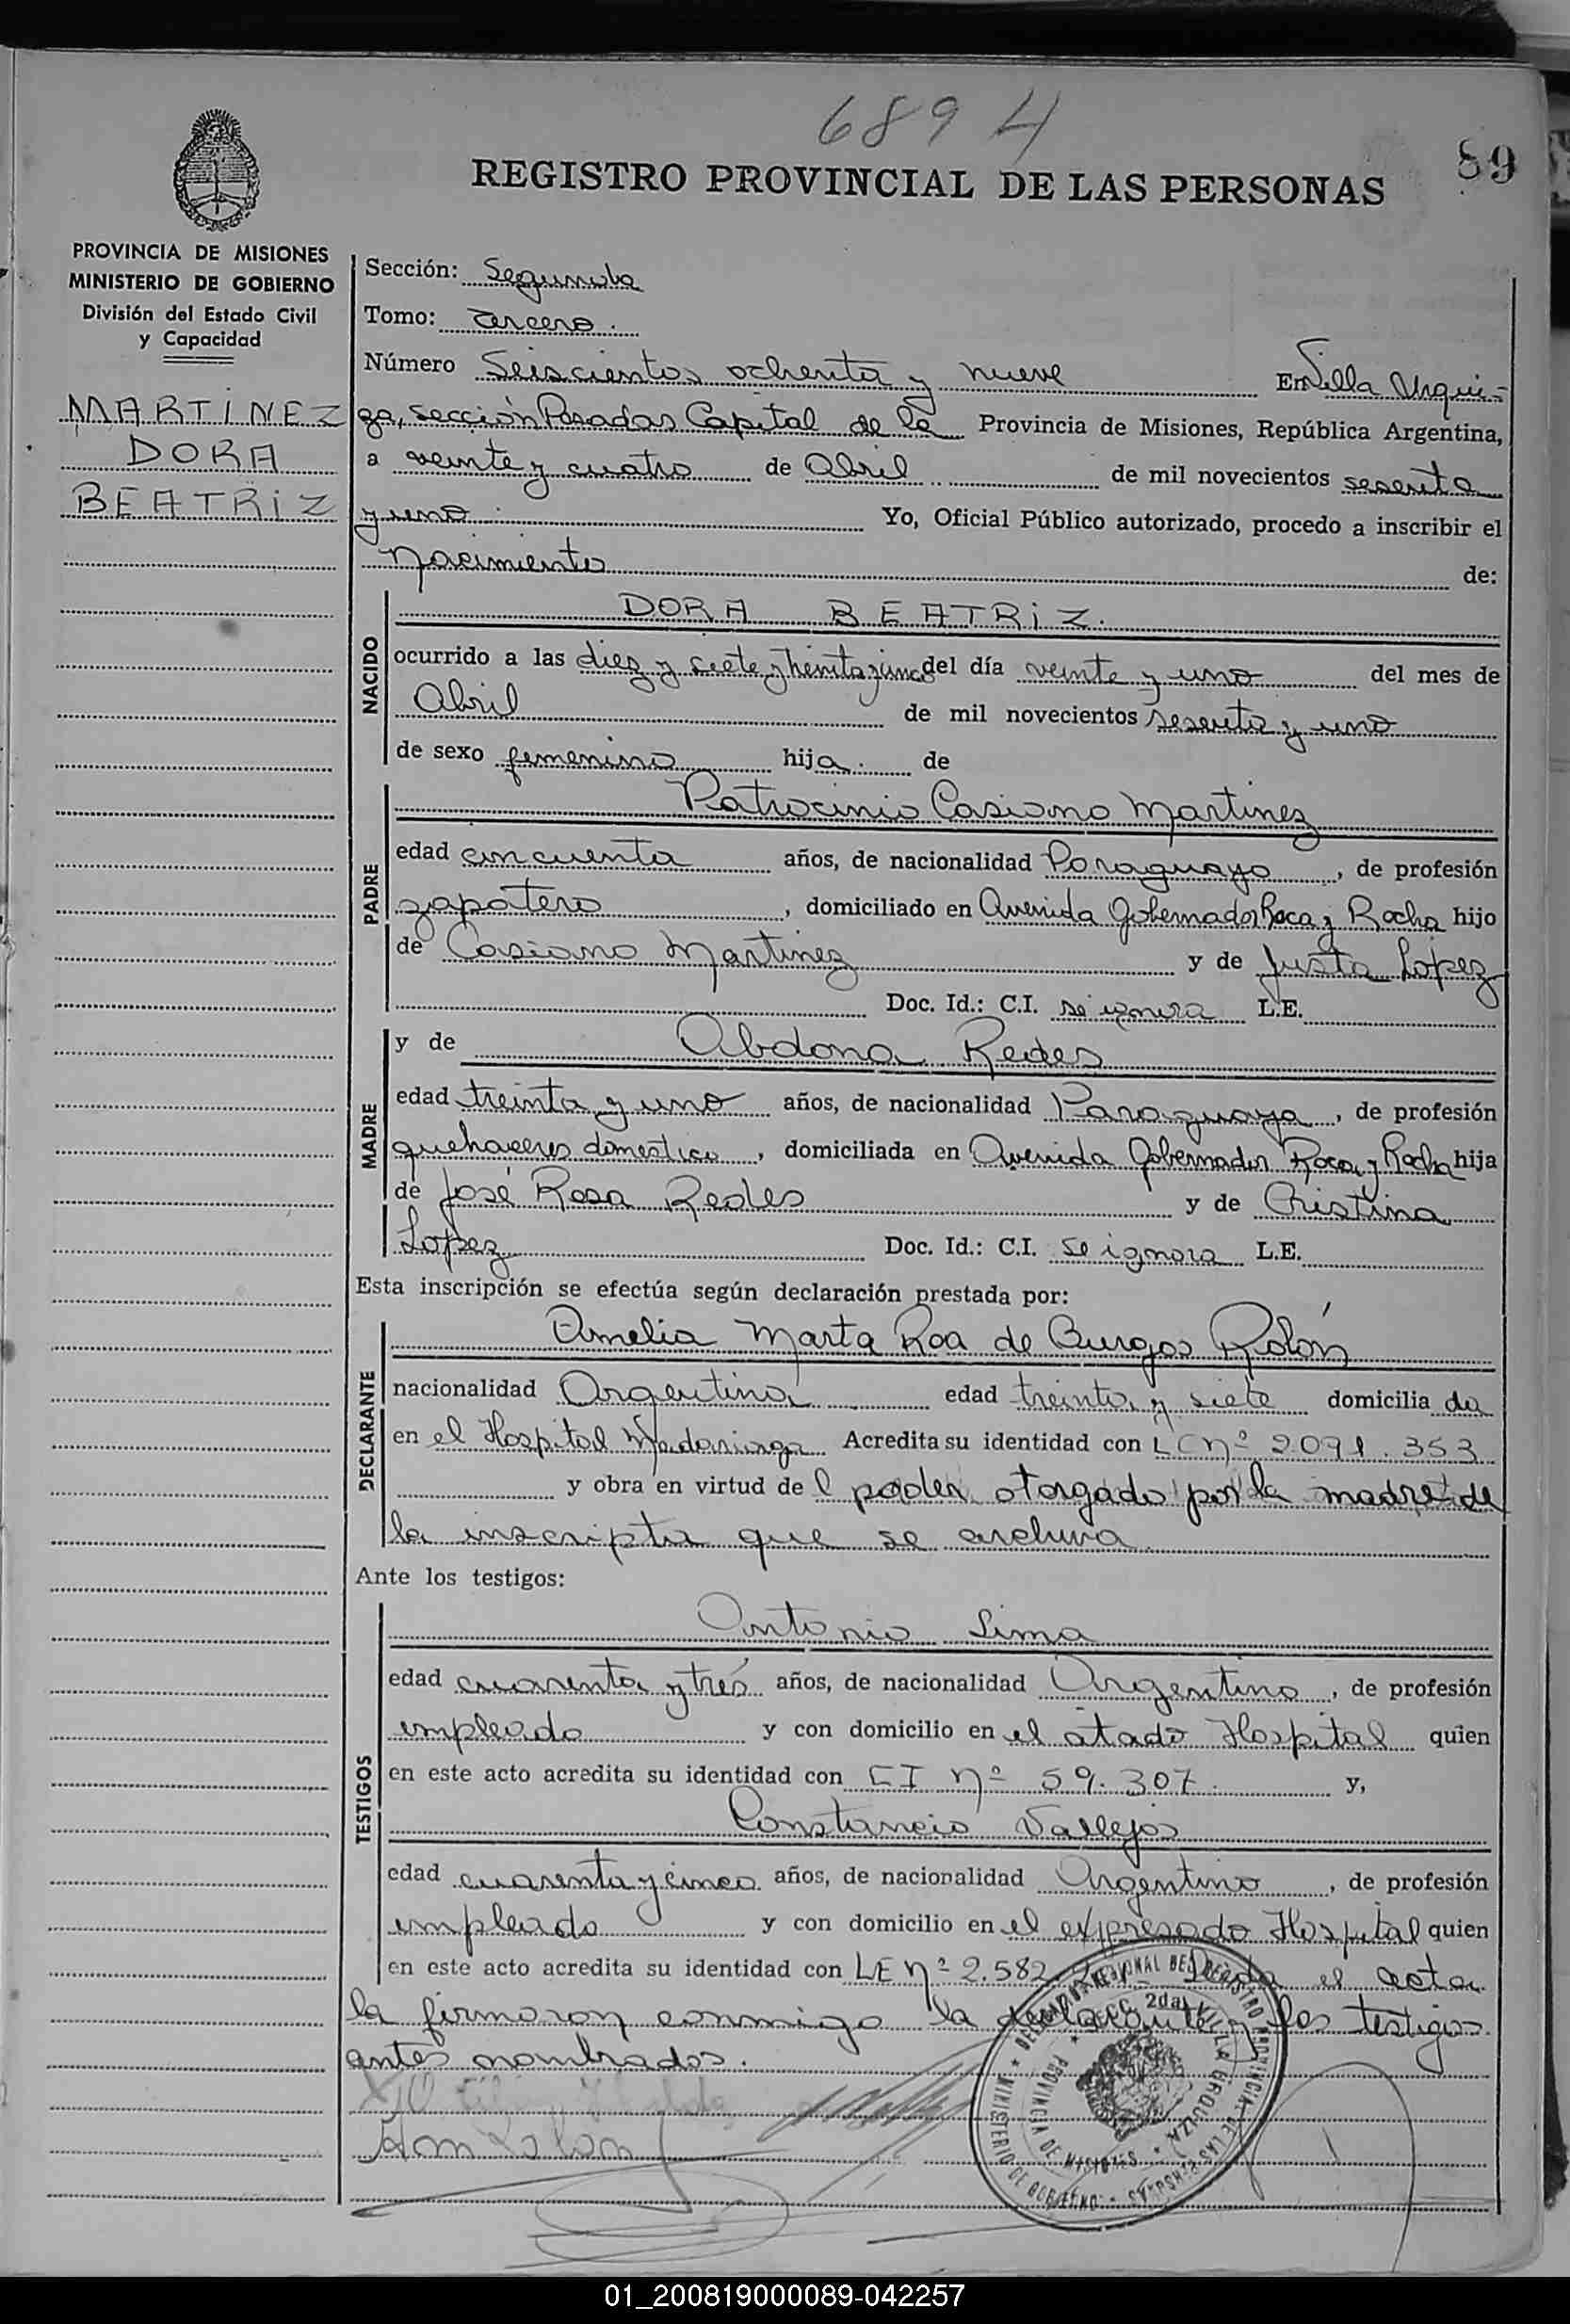 689 4
89
REGISTRO PROVINCIAL DE LAS PERSONAS
PROVINCIA DE MISIONES
MINISTERIO DE GOBIERNO
División del Estado Civil
y Capacidad
MARTINEZ
DORA
BEATRIZ
Sección: Segunda
Tomo: Tercero.
Número Seiscientos ochenta y nueve En Villa Urqui-
za, sección Posadas Capital de la Provincia de Misiones, República Argentina,
a veinte y cuatro de Abril de mil novecientos sesenta
y uno. Yo, Oficial Público autorizado, procedo a inscribir el
nacimiento de:
NACIDO
DORA BEATRIZ.
ocurrido a las diez y siete y treinta y cinco del día veinte y uno del mes de
Abril de mil novecientos sesenta y uno
de sexo femenino hija de
PADRE
Patrocinio Casiano Martinez
edad cincuenta años, de nacionalidad Paraguayo, de profesión
zapatero, domiciliado en Avenida Gobernador Roca y Rocha hijo
de Casiano Martinez y de Justa Lopez
Doc. Id.: C.I. se ignora L.E.
MADRE
y de Abdona Redes
edad treinta y uno años, de nacionalidad Paraguaya, de profesión
quehaceres domestico, domiciliada en Avenida Gobernador Roca y Rocha hija
de José Rosa Redes y de Cristina
Lopez Doc. Id.: C.I. se ignora L.E.
Esta inscripción se efectúa según declaración prestada por:
DECLARANTE
Amelia Marta Roa de Burgos Rolón
nacionalidad Argentina edad treinta y siete domicilia da
en el Hospital Madariaga Acredita su identidad con LC nº 2.091.353
y obra en virtud de l poder otorgado por la madre de
la inscripta que se archiva
Ante los testigos:
TESTIGOS
Antonio Lima
edad cuarenta y trés años, de nacionalidad Argentino, de profesión
empleado y con domicilio en el atado Hospital quien
en este acto acredita su identidad con CI nº 59.307. y,
Constancio Vallejos
edad cuarenta y cinco años, de nacionalidad Argentino, de profesión
empleado y con domicilio en el expresado Hospital quien
en este acto acredita su identidad con LE nº 2.582. Leida el acta
la firmaron conmigo la declarante y los testigos
antes nombrados.
REGIONAL DEL REGISTRO PROVINCIAL DE LAS PERSONAS
MINISTERIO DE GOBIERNO
2da. VILLA URQUIZA
PROVINCIA DE MISIONES
01_200819000089-042257